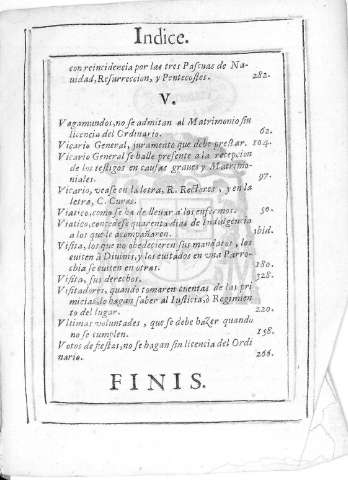 Indice.
con reincidencia por las tres Pascuas de Na-
uidad, Resurreccion, y Pentecostes. 282.
V.
Vagamundos, no se admitan al Matrimonio sin
licencia del Ordinario. 62.
Vicario General, juramento que debe prestar. 104.
Vicario General se halle presente a la recepcion
de los testigos en causas graues y Matrimo-
niales. 97.
Vicario, vease en la letra, R. Rectores, y en la
letra, C. Curas.
Viatico, como se ha de lleuar a los enfermos. 50.
Viatico, concedese quarenta dias de Indulgencia
a los que le acompañaren. ibid.
Visita, los que no obedecieren sus mandatos, los
euiten à Diuinis, y los euitados en vna Parro-
chia se euiten en otras. 180.
Visita, sus derechos. 328.
Visitadores, quando tomaren cuentas de las pri
micias, lo hagan saber al Iusticia, ò Regimien
to del lugar. 220.
Vltimas voluntades, que se debe hazer quando
no se cumplen. 158.
Votos de fiestas, no se hagan sin licencia del Ordi
nario. 266.
FINIS.